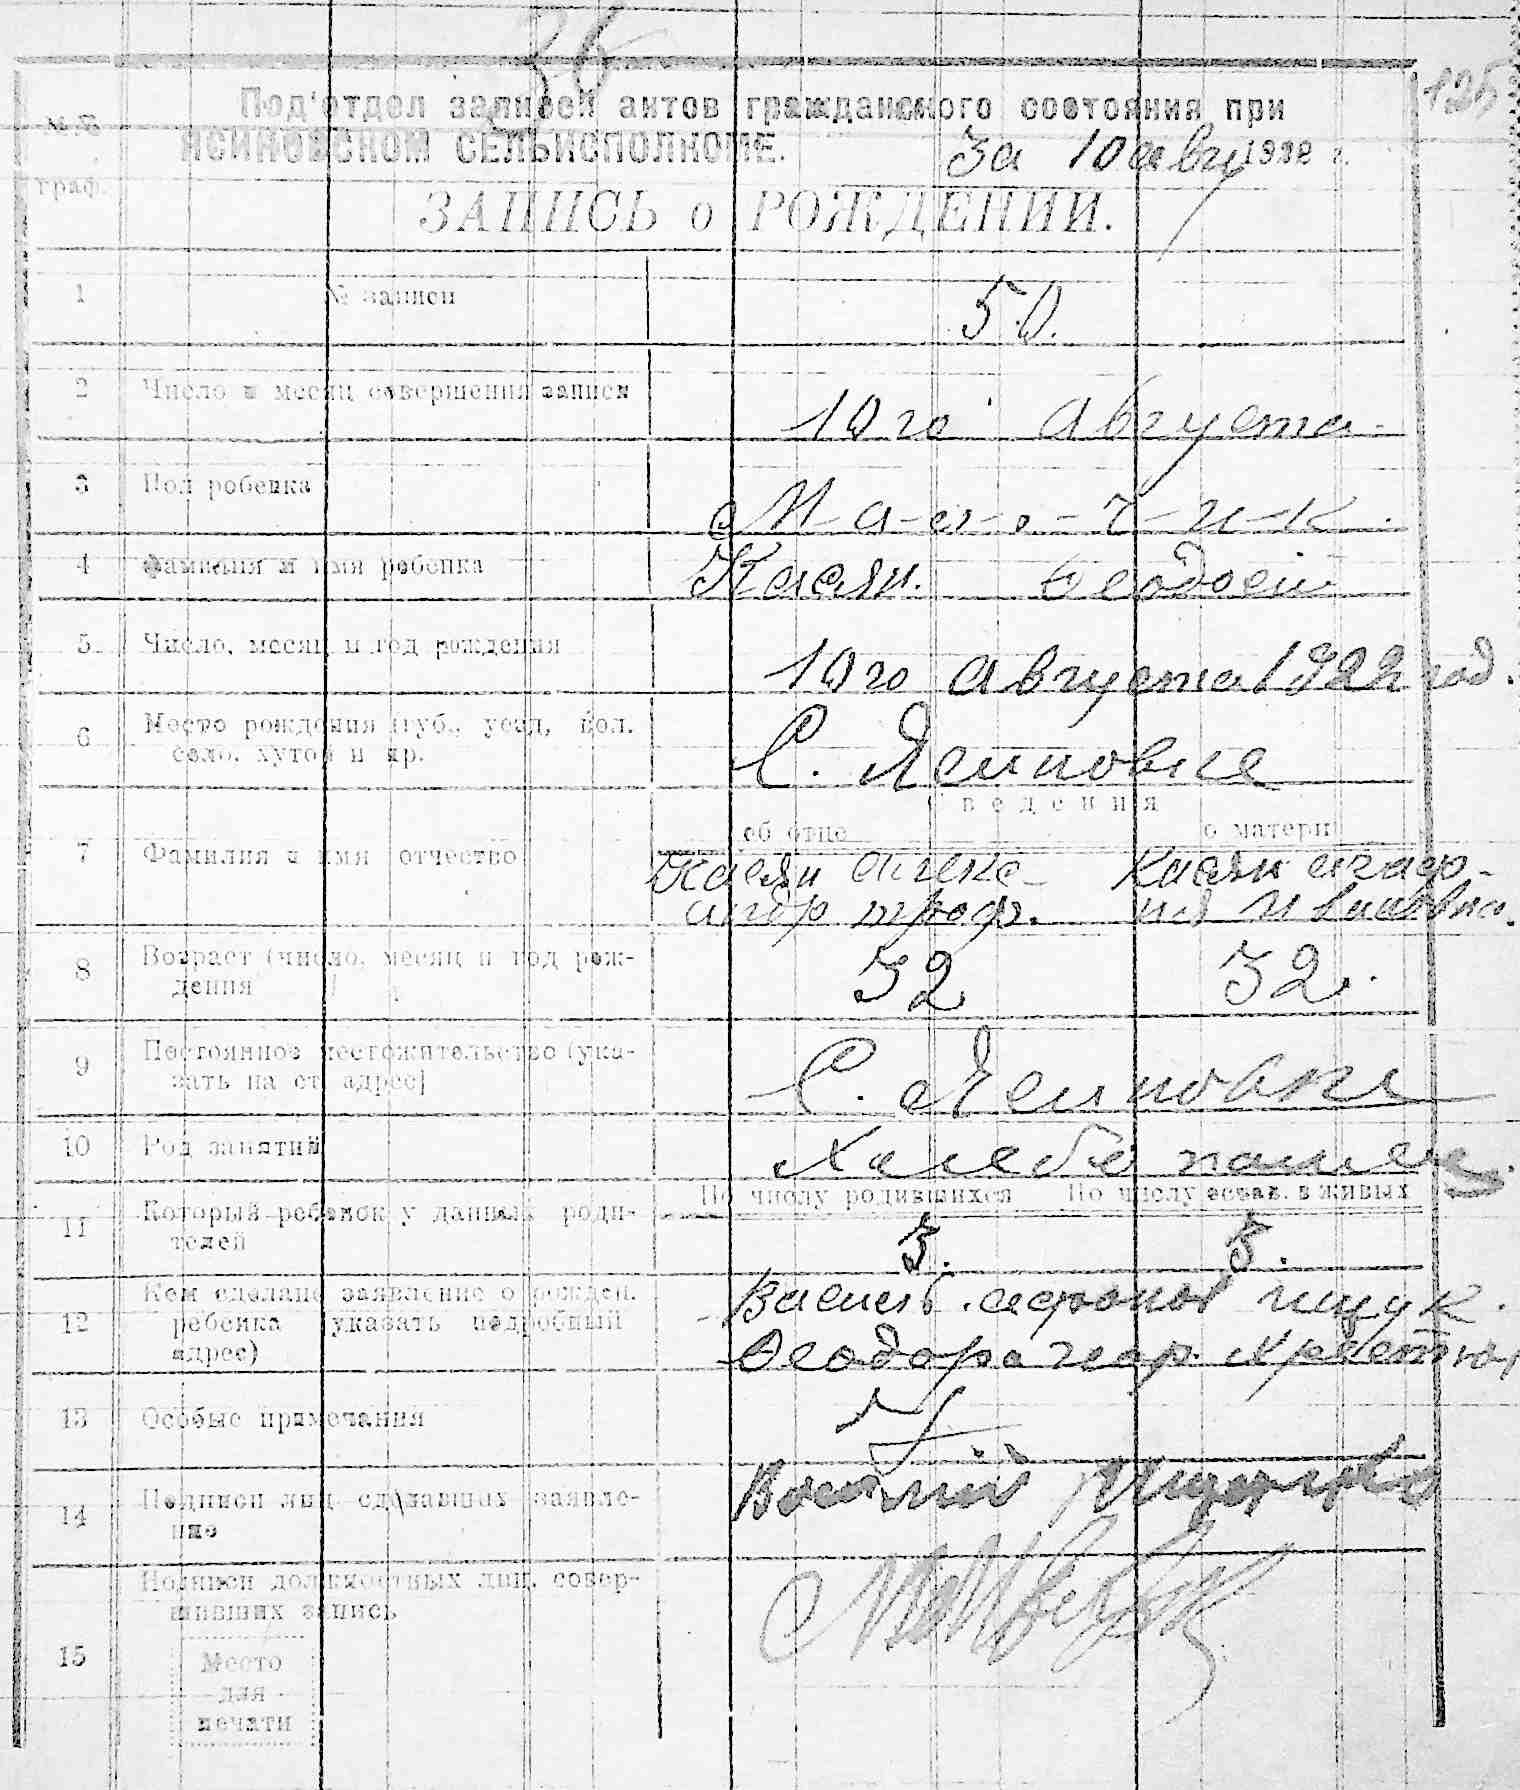 36
125
№№ граф.
Под'отдел записей актов гражданского состояния при
ЯСИНОВСКОМ СЕЛЬИСПОЛКОМЕ.
за 10 авгу 1922 г.
ЗАПИСЬ о РОЖДЕНИИ.
1 № записи 50.
2 Число и месяц совершения записи 10го Августа.
3 Пол робенка М-а-л-ь-ч-и-к.
4 Фамилия и имя ребенка Касян. Феодосий
5 Число, месяц и год рождения 10го Августа 1922 год.
6 Место рождения (губ., уезд, вол. село, хутор и пр. С. Ясиновке
Сведения
об отце о матери
7 Фамилия и имя отчество Касян Алекс- Касян Агаф-
андр троф. ия Ивановна.
8 Возраст (число, месяц и год рож-
дения 32 32.
9 Постоянное местожительство (ука-
зать на ст. адрес) С. Ясиновке
10 Род занятий Хлебо пашец.
По числу родившихся По числу остав. в живых
11 Который ребенок у данных роди-
телей 3. 3.
12 Кем сделано заявление о рожден.
ребенка (указать подробный
адрес)
Феодора
13 Особые примечания
14 Подписи лиц сделавших заявле-
ние
15 Подписи должностных лиц, совер-
шивших запись
Место
для
печати